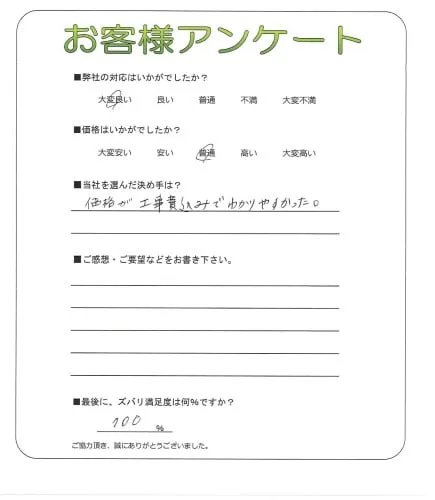 お客様アンケート
■弊社の対応はいかがでしたか？
大変良い 良い 普通 不満 大変不満
■価格はいかがでしたか？
大変安い 安い 普通 高い 大変高い
■当社を選んだ決め手は？
価格が工事費込みでわかりやすかった。
■ご感想・ご要望などをお書き下さい。
■最後に、ズバリ満足度は何%ですか？
100 %
ご協力頂き、誠にありがとうございました。